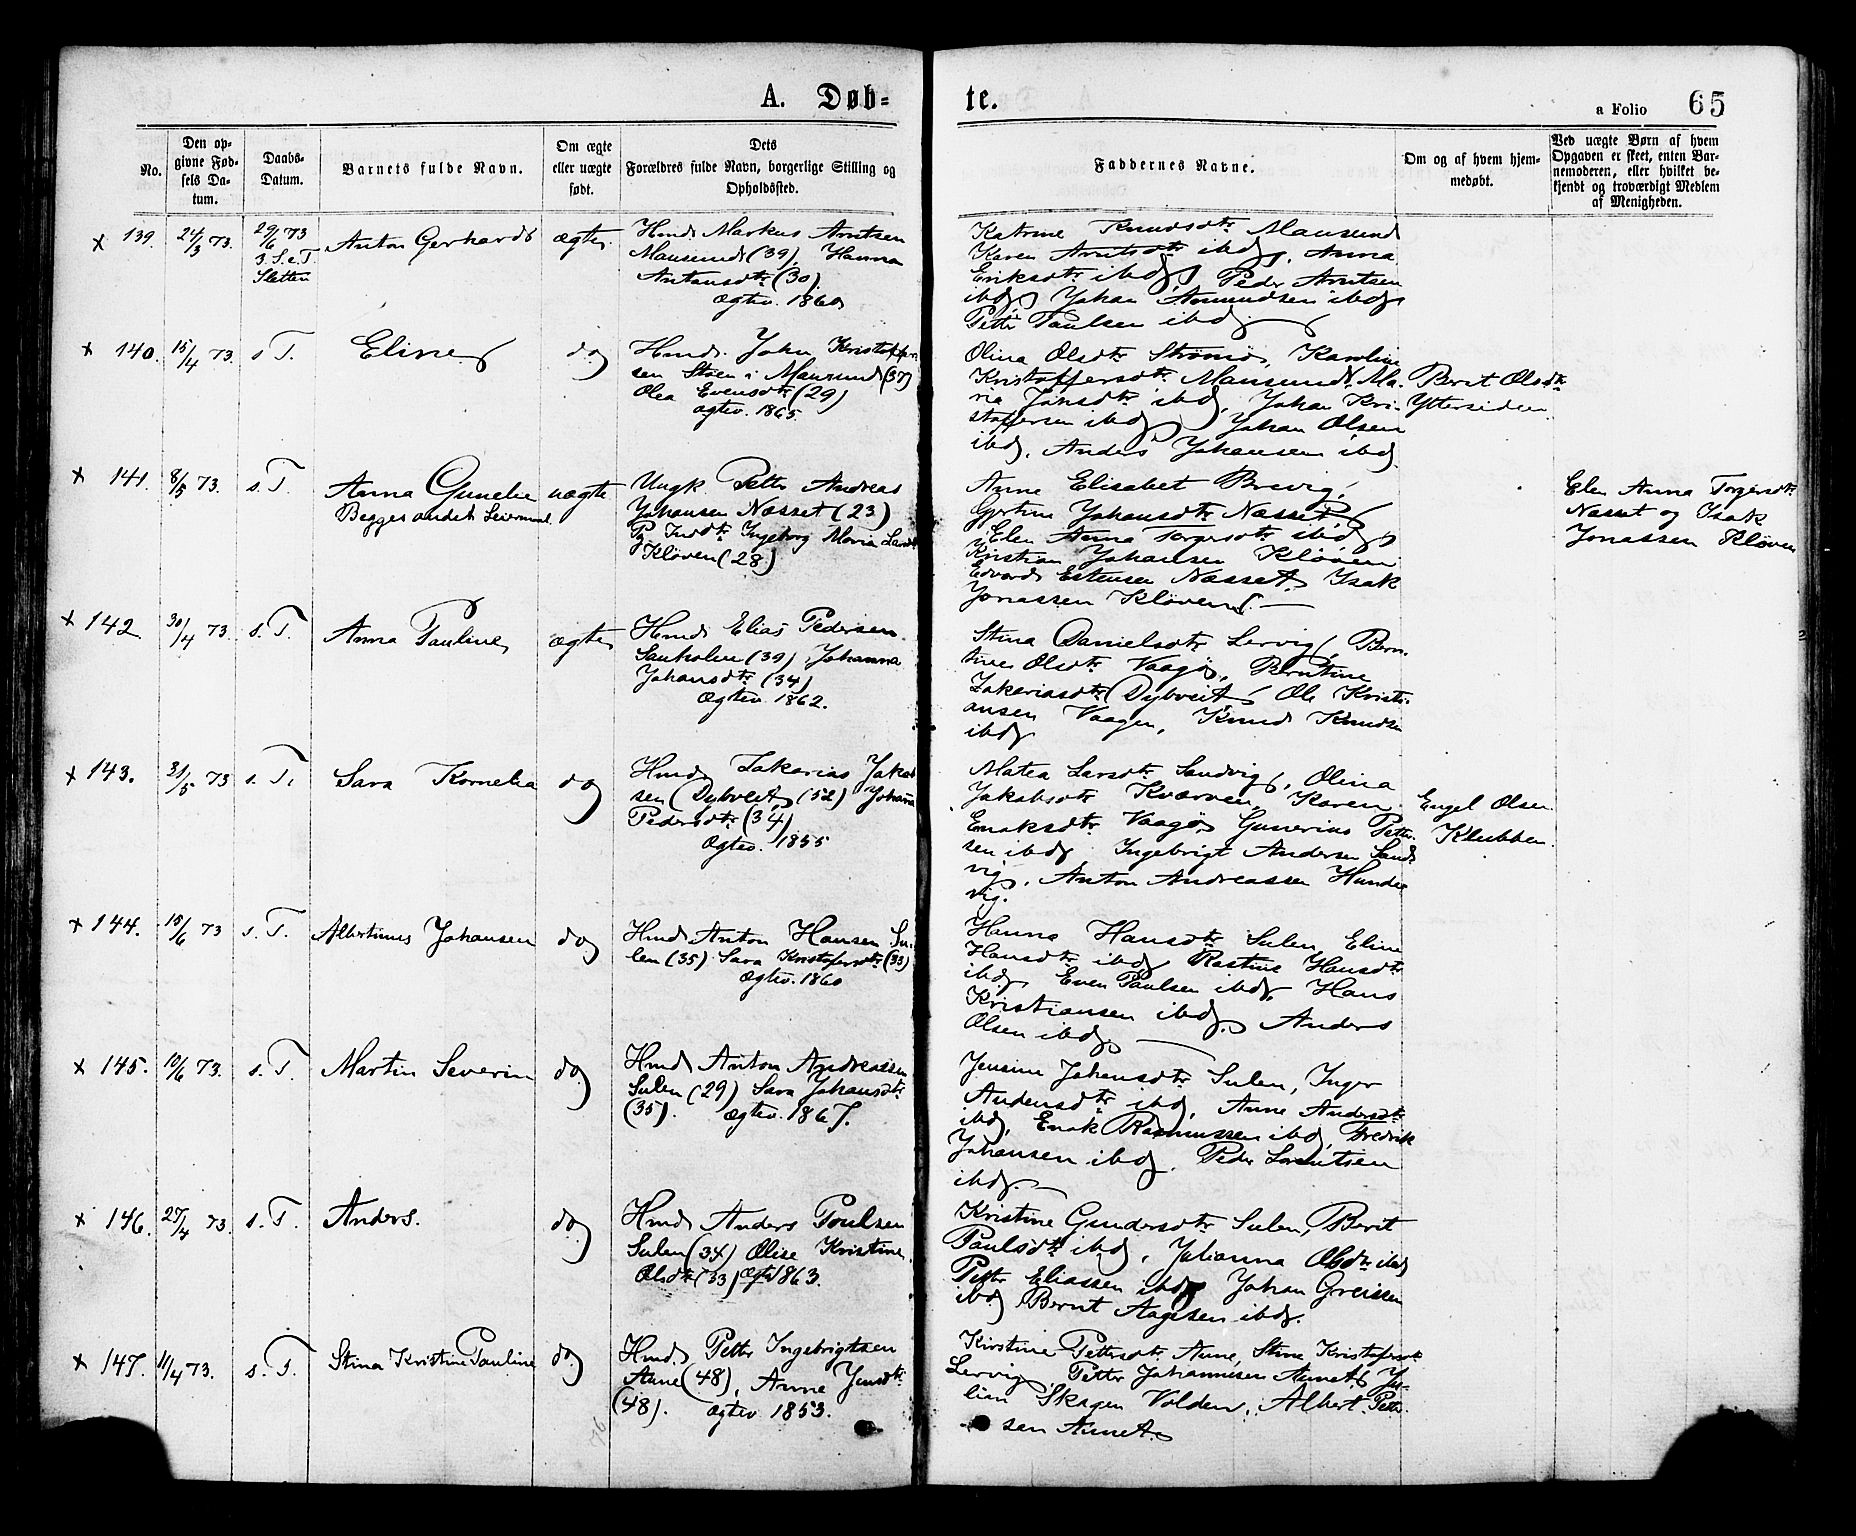 A. Døb=
te.
a Folio 65
No.
Den op-
givne Fød-
sels Da-
tum.
Daabs-
Datum.
Barnets fulde Navn.
Om ægte
eller uægte
født.
Dets
Forældres fulde Navn, borgerlige Stilling og
Opholdssted.
Faddernes Navne.
Om og af hvem hjem-
medøbt.
Ved uægte Børn af hvem
Opgaven er skeet, enten Bar-
nemoderen, eller hvilket be-
kjendt og troværdigt Medlem
af Menigheden.
x 139. 24/3 73. 29/6 73
3. S. e. T.
Sletten
Anton Gerhard
ægte
Hmd. Markus Arntsen
Mausund (39), Hanna
Antonsdtr (30).
Ægtev. 1860
Katrine Knudsdtr Mausund
Karen Arntsdtr ibd, Anna
Eriksdtr ibd, Peder Arntsen
ibd, Johan Amundsen ibd
Petter Paulsen ibd
x 140. 15/4 73. s. T.
Eline
do
Hmd. John Kristoffer-
sen Støen i Mausund (37)
Olea Evensdtr (29)
Ægtev. 1865.
Olina Olsdtr Strømø, Karoline
Kristoffersdtr Mausund, Ma-
ria Jonsdtr ibd, Johan Kri-
stoffersen ibd, Johan Olsen
ibd, Anders Johansen ibd.
Berit Olsdtr
Yttersiden.
x 141. 8/5 73. s. T.
Anna Gunelie
Begges andet Leiermaal.
uægte
Ungk. Petter Andreas
Johansen Næsset (23)
Pg. Indtr Ingeborg Maria
Kløven (28)
Anne Elisabet Brevig,
Gjertine Johansdtr Næsset,
Elen Anna Torgersdtr ibd,
Kristian Johansen Kløven
Edvard Estensen Næsset, Isak
Jonassen Kløven.
Elen Anna Torgersdtr
Næsset og Isak
Jonassen Kløven
x 142. 30/4 73. s. T.
Anna Pauline
ægte
Hmd. Elias Pedersen
Sauholm (39), Johanna
Johansdtr (34)
Ægtev. 1862.
Stina Danielsdtr Lervig, Bern-
tine Olsdtr Vaagø, Berntine
Zakariasdtr Dybveit, Ole Kristi-
ansen Vaagen, Knud Knudsen
ibd
x 143. 31/5 73 s. T.
Sara Kornelia
do
Hmd. Zakarias Jakob-
sen Dybveit (52) Johanna
Pedersdtr (34)
Ægtev. 1855
Matea Larsdtr Sandvig, Olina
Jakobsdtr Kværven, Karen
Enoksdtr Vaagø, Gunerius Petter-
sen ibd, Ingebrigt Andersen Sand-
vig, Anton Andreassen Hunde-
vig.
Engel Olsen
Klubben
x 144. 15/6 73 s. T.
Albertinus Johansen
do
Hmd. Anton Hansen Su-
len (35) Sara Kristofersdtr (33)
Ægtev. 1860
Hanna Hansdtr Sulen, Eline
Hansdtr ibd, Kastine Hansdtr
ibd, Even Paulsen ibd, Hans
Kristiansen ibd, Anders
Olsen ibd
x 145. 10/6 73. s. T.
Martin Severin
do.
Hmd. Anton Andreassen
Sulen (29) Sara Johansdtr
(35). Ægtev. 1867.
Jensine Johansdtr Sulen, Inger
Andersdtr ibd, Anne Andersdtr
ibd, Enok Rasmussen ibd, Fredrik
Johansen ibd, Peder Lorentsen
ibd.
x 146. 27/4 73. s. T.
Anders.
do
Hmd. Anders Poulsen
Sulen (34) Olise Kristine
Olsdtr (33) Ægtev. 1863.
Kristine Gundersdtr Sulen, Berit
Paulsdtr ibd, Julianna Olsdtr ibd
Petter Eliassen ibd, Johan Greissen
ibd, Bernt Aagesen ibd.
x 147. 11/4 73. s. T.
Stina Kristine Pauline
do.
Hmd. Petter Ingebrigtsen
Aune (48), Anne Jensdtr
(48). Ægtev. 1853.
Kirstine Pettersdtr Aune, Stine Kristofersdtr
Lervig, Petter Johannesen Aunet, Ju-
lian Skagen Volden, Albert Petter-
sen Aunet.